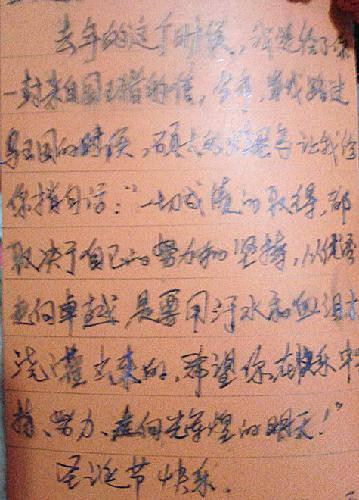 去年的这个时候，我是给了你
一封来自国王猪的信，今年，当我路过
国的时候，硕大的 让我给
你捎句话：“一切成绩的取得，都
取决于自己的努力和坚持，从优秀
走向卓越，是要用汗水和血泪去
浇灌出来的，希望你，在快乐中坚
持、努力、走向光辉煌的明天！”
圣诞节快乐.